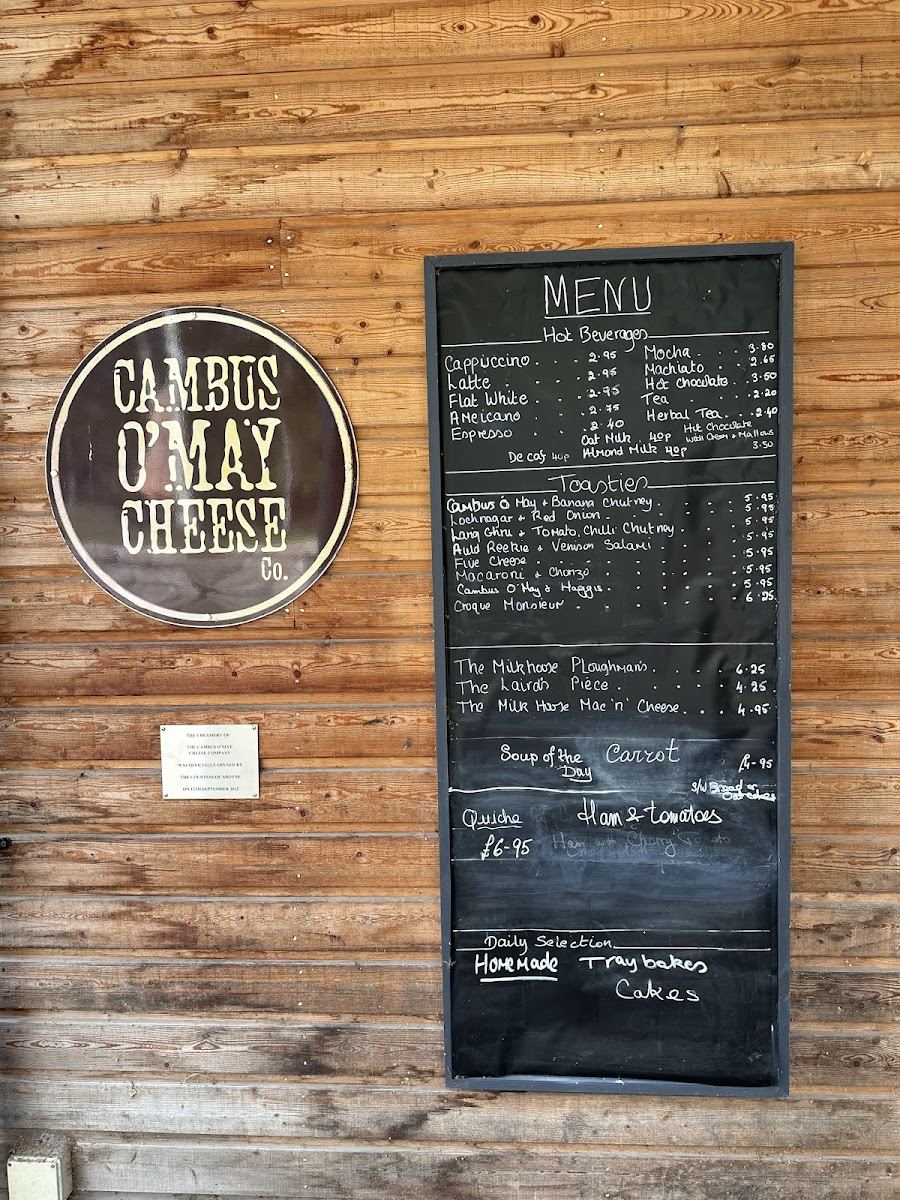 CAMBUS
O'MAY
CHEESE
Co.
THE CREAMERY OF
THE CAMBUS O'MAY
CHEESE COMPANY
WAS OFFICIALLY OPENED BY
THE COUNTESS OF ABOYNE
ON 12TH SEPTEMBER 2012
MENU
Hot Beverages
Cappuccino . . . 2.95
Latte . . . . 2.95
Flat White . . . 2.75
Ameicano . . . 2.75
Espresso . . . 2.40
Mocha . . . 3.80
Machiato . . 2.65
Hot Chocolate . . 3.50
Tea . . . . 2.20
Herbal Tea . . 2.40
Oat Milk 40p
Hot Chocolate
with Cream & Mallows
3.50
De caf 40p Almond Milk 40p
Toasties
Cambus O May & Banana Chutney . . . . 5.95
Lochnagar & Red Onion . . . . 5.95
Lairig Ghru & Tomato, Chilli Chutney . . . 5.95
Auld Reekie & Venison Salami . . . . 5.95
Five Cheese . . . . . . 5.95
Macaroni & Chorizo . . . . . 5.95
Cambus O'May & Haggis . . . . . 5.95
Croque Monsieur . . . . . . 6.25
The Milkhoose Ploughman's . . . . 6.25
The Laird's Piece . . . . . 4.25
The Milk Hoose Mac 'n' Cheese . . . 4.95
Soup of the Day Carrot £4-95
S/W Bread or
Oatcakes
Quiche Ham & tomatoes
£6-95 Ham with Cherry Tomato
Daily Selection
Homemade Traybakes
Cakes